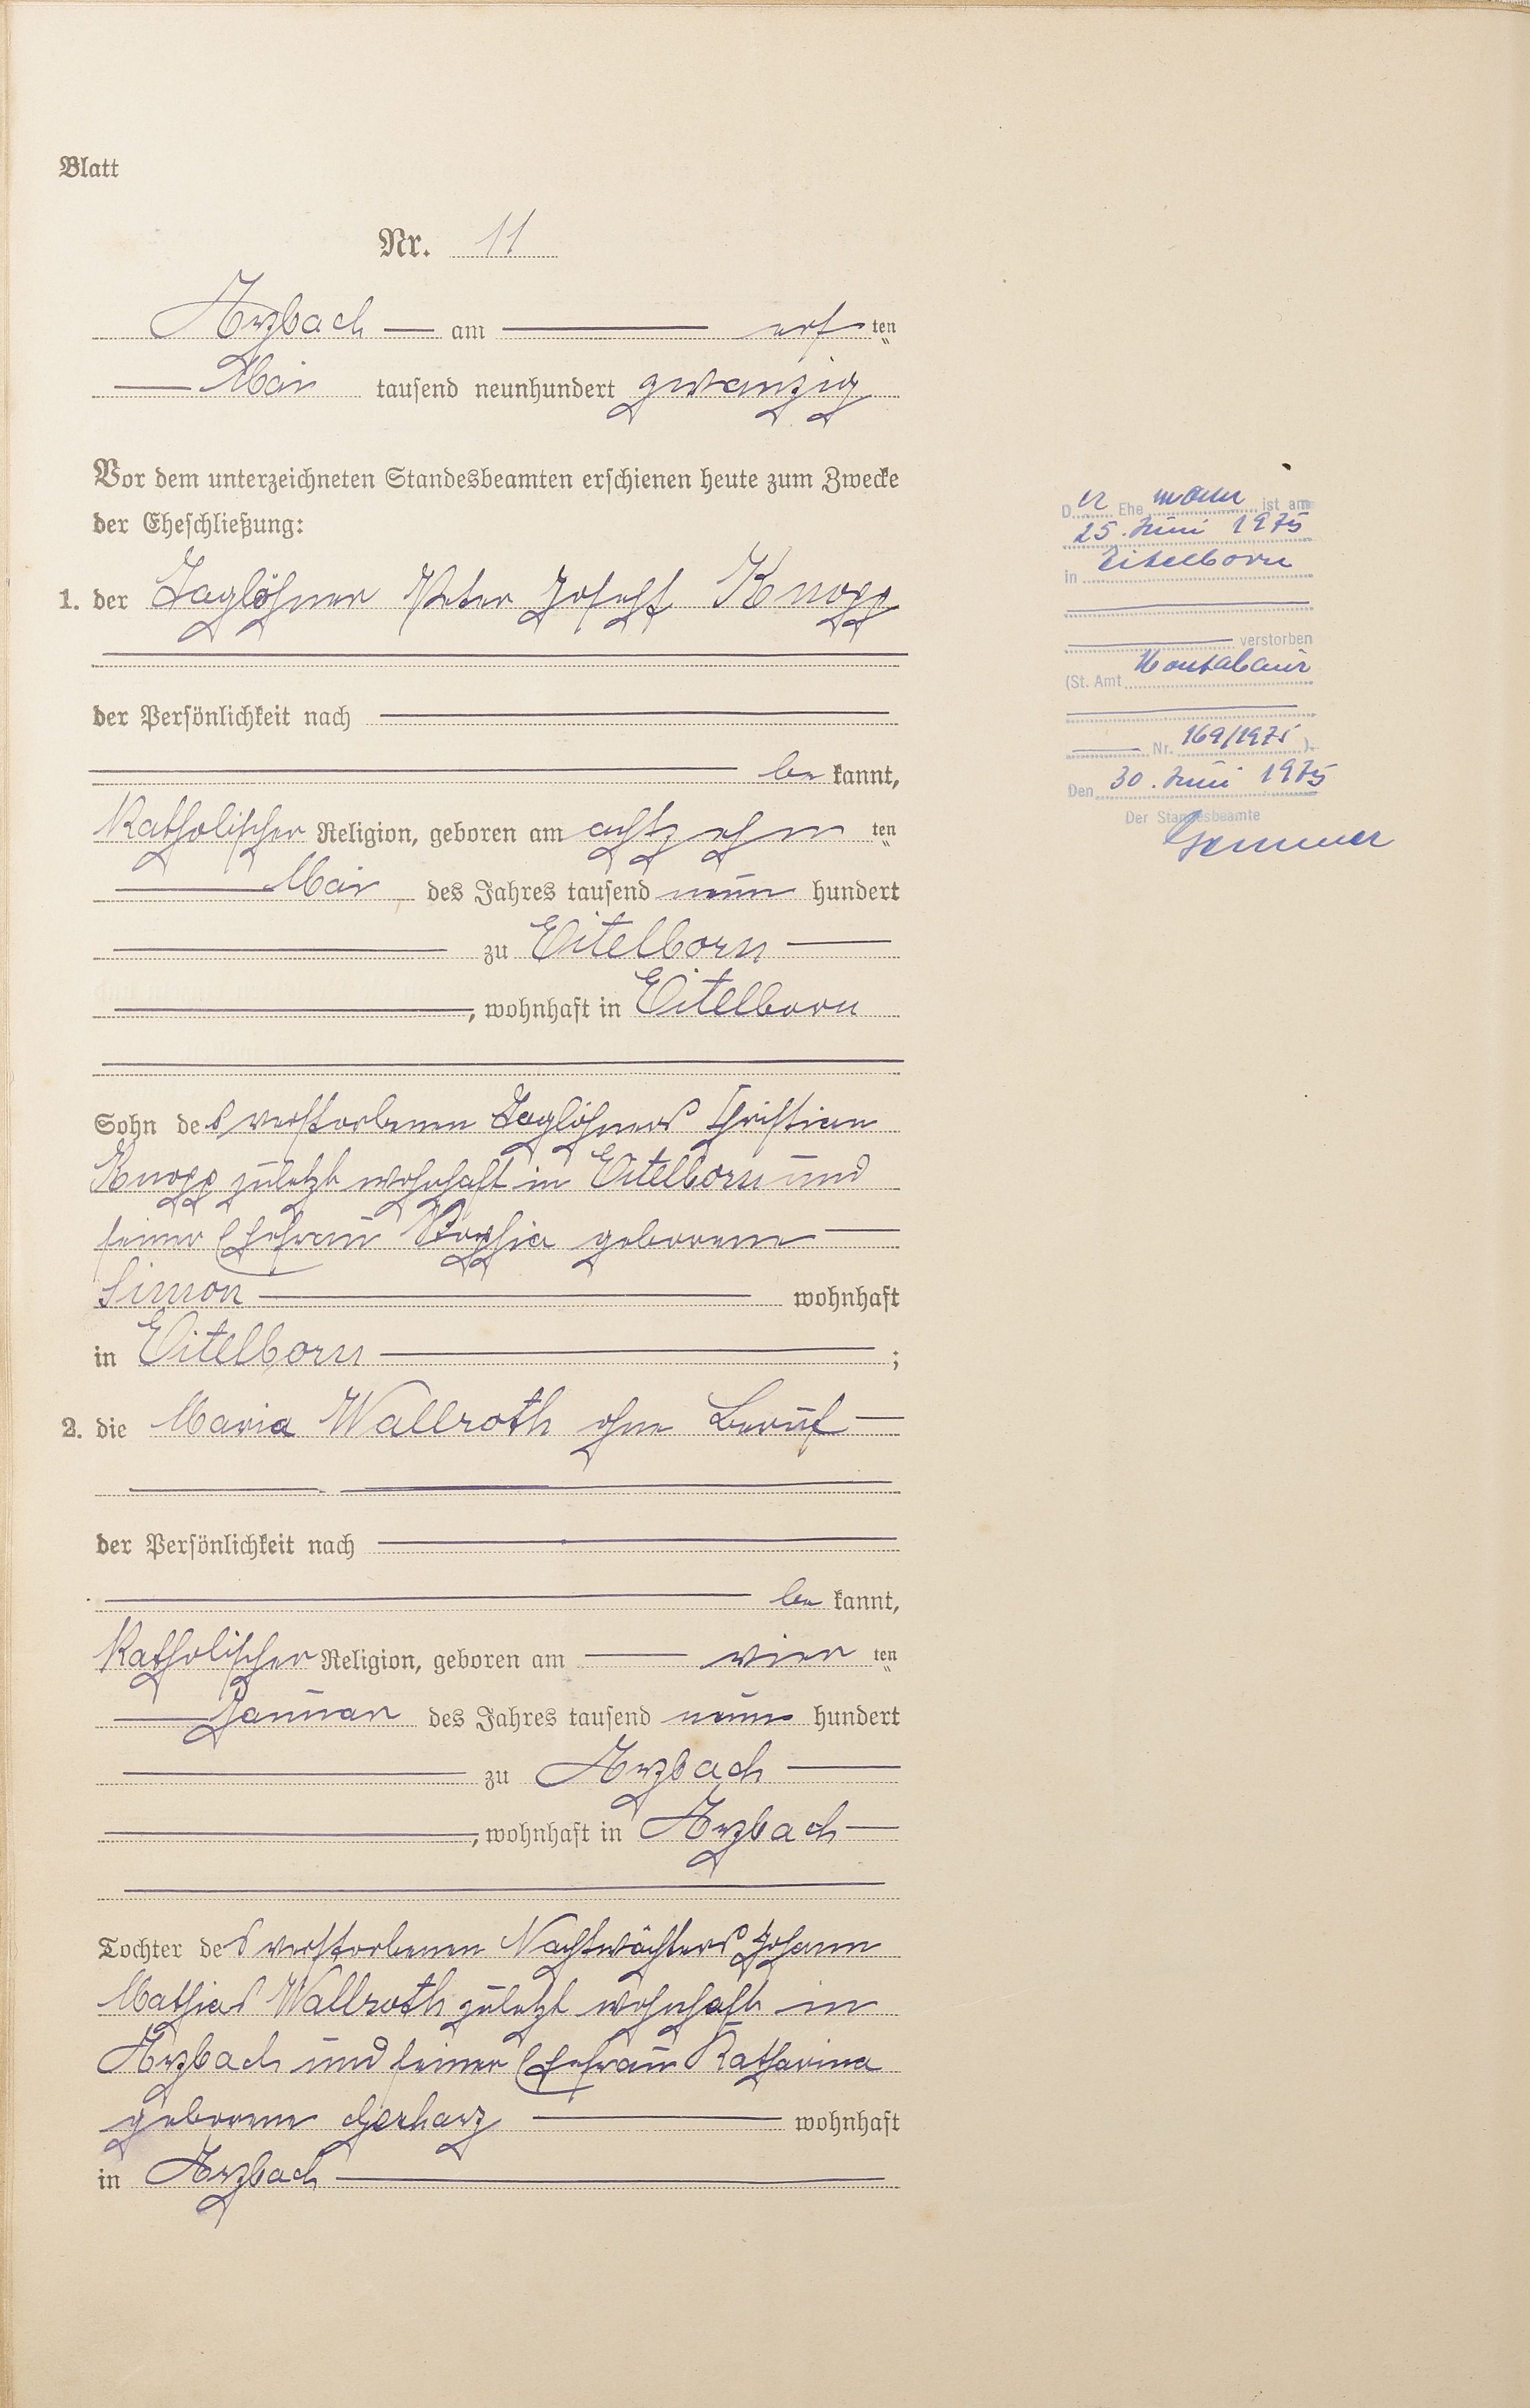 Blatt
Nr. 11
Arzbach — am — ersten
— Mai tausend neunhundert zwanzig
Vor dem unterzeichneten Standesbeamten erschienen heute zum Zwecke
der Eheschließung:
1. der Taglöhner Peter Joseph Knopp
der Persönlichkeit nach —
— be kannt,
Katholischer Religion, geboren am achtzehn ten
— Mai des Jahres tausend neun hundert
— zu Eitelborn —
—, wohnhaft in Eitelborn
Sohn des verstorbenen Taglöhners Christian
Knopp zuletzt wohnhaft in Eitelborn und
seiner Ehefrau Sophia geborene —
Simon — wohnhaft
in Eitelborn — ;
2. die Maria Wallroth ohne Beruf —
der Persönlichkeit nach —
— be kannt,
Katholischer Religion, geboren am — vier ten
— Januar des Jahres tausend neun hundert
— zu Arzbach —
—, wohnhaft in Arzbach —
Tochter des verstorbenen Nachtwächters Johann
Mathias Wallroth zuletzt wohnhaft in
Arzbach und seiner Ehefrau Katharina
geborene Gerharz — wohnhaft
in Arzbach —
Der Ehe mann ist am
25. Juni 1975
in Eitelborn
— verstorben
(St. Amt Montabaur
— Nr. 169/1975 ).
Den 30. Juni 1975
Der Standesbeamte